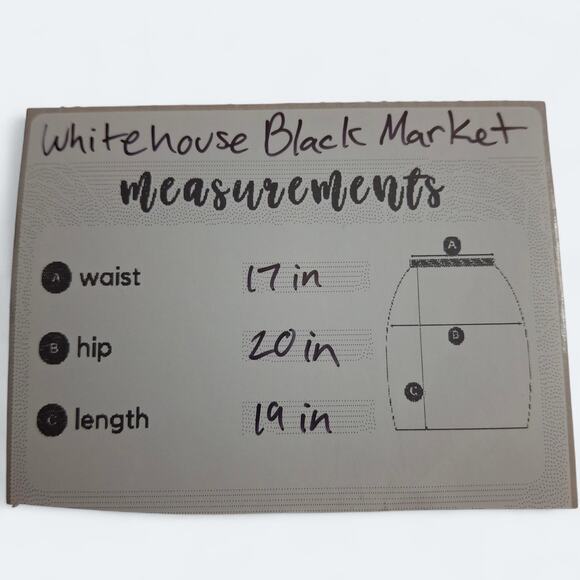 Whitehouse Black Market
measurements
A waist 17 in
B hip 20 in
C length 19 in
A
B
C